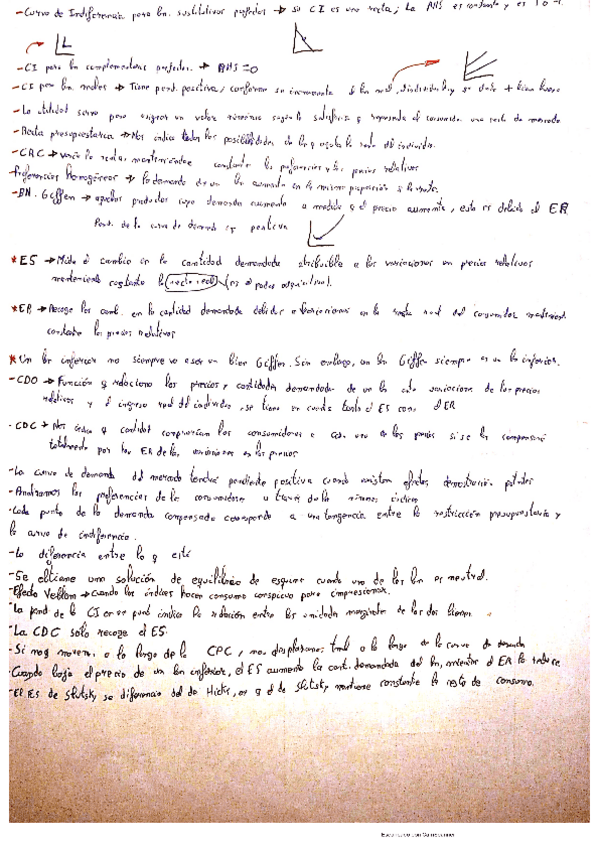 -Curva de Indiferencia para bn. sustitutivos perfectos → su CI es una recta; La RMS es constante y es
-CI para bn complementarios perfectos. → RMS=0
-CI para bn males → Tiene pend. positiva, conforme se incrementa el bn mal, el individuo
-La utilidad sirve para asignar un valor numérico según la satisfacción q reporta al consumidor una cesta de mercado
-Recta presupuestaria → Nos indica todas las posibilidades de la renta del individuo.
-CRC → varía la renta manteniéndose constante las preferencias y los precios relativos
Preferencias Homogéneas → la demanda de un bn aumenta en la misma proporción q la renta.
-BN. Giffen → aquellos productos cuya demanda aumenta a medida q el precio aumenta, esto es debido al ER
Pend. de la curva de demanda es positiva
*ES → Mide el cambio en la cantidad demandada atribuible a las variaciones en precios relativos
manteniendo constante la renta real (es el poder adquisitivo).
*ER → Recoge los camb. en la cantidad demandada debidos a variaciones en la renta real del consumidor manteniendo
constante los precios relativos
*Un bn inferior no siempre va a ser un bien Giffen. Sin embargo, un bn Giffen siempre es un bn inferior.
-CDO → Función q relaciona los precios y cantidades demandadas de un bn ante variaciones de los precios
relativos y el ingreso real del individuo, se tiene en cuenta tanto el ES como el ER
-CDC → Nos indica q cantidad comprarían los consumidores a cada uno de los precios si se les compensara
totalmente por los ER de las variaciones en los precios
-La curva de demanda del mercado tendrá pendiente positiva cuando existan efectos demostración
-Analizamos las preferencias de los consumidores a través de
-Cada punto de la demanda compensada corresponde a una tangencia entre la restricción presupuestaria y
la curva de indiferencia.
-La diferencia entre lo q está
-Se obtiene una solución de equilibrio de esquina cuando uno de los bn es neutral.
-Efecto Veblen → Cuando los individuos hacen consumo conspicuo para impresionar.
-La pend de la CI en un punto indica la relación entre las unidades marginales de los dos bienes.
-La CDC solo recoge el ES.
-Si nos movemos a lo largo de la CPC, nos desplazamos tamb. a lo largo de la curva de demanda
-Cuando baja el precio de un bn inferior, el ES aumenta la cant. demandada del bn, mientras el ER la reduce.
-El ES de Slutsky se diferencia del de Hicks, en q el de Slutsky mantiene constante la cesta de consumo.
Escaneado con CamScanner